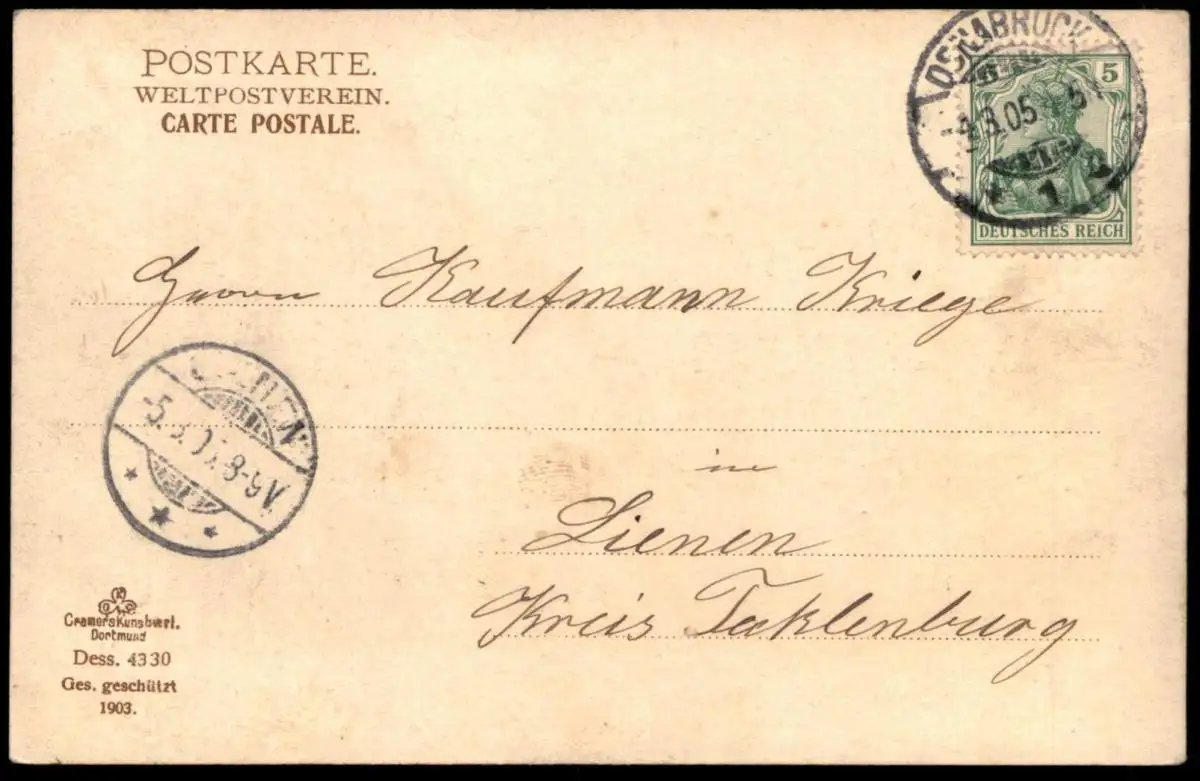 POSTKARTE.
WELTPOSTVEREIN.
CARTE POSTALE.
OSNABRÜCK
5
.3.05
1
DEUTSCHES REICH
Herrn Kaufmann Kriege
-5.3.0 8-9V
in
Lienen
Kreis Tecklenburg
Cramers Kunstverl.
Dortmund
Dess. 4330
Ges. geschützt
1903.